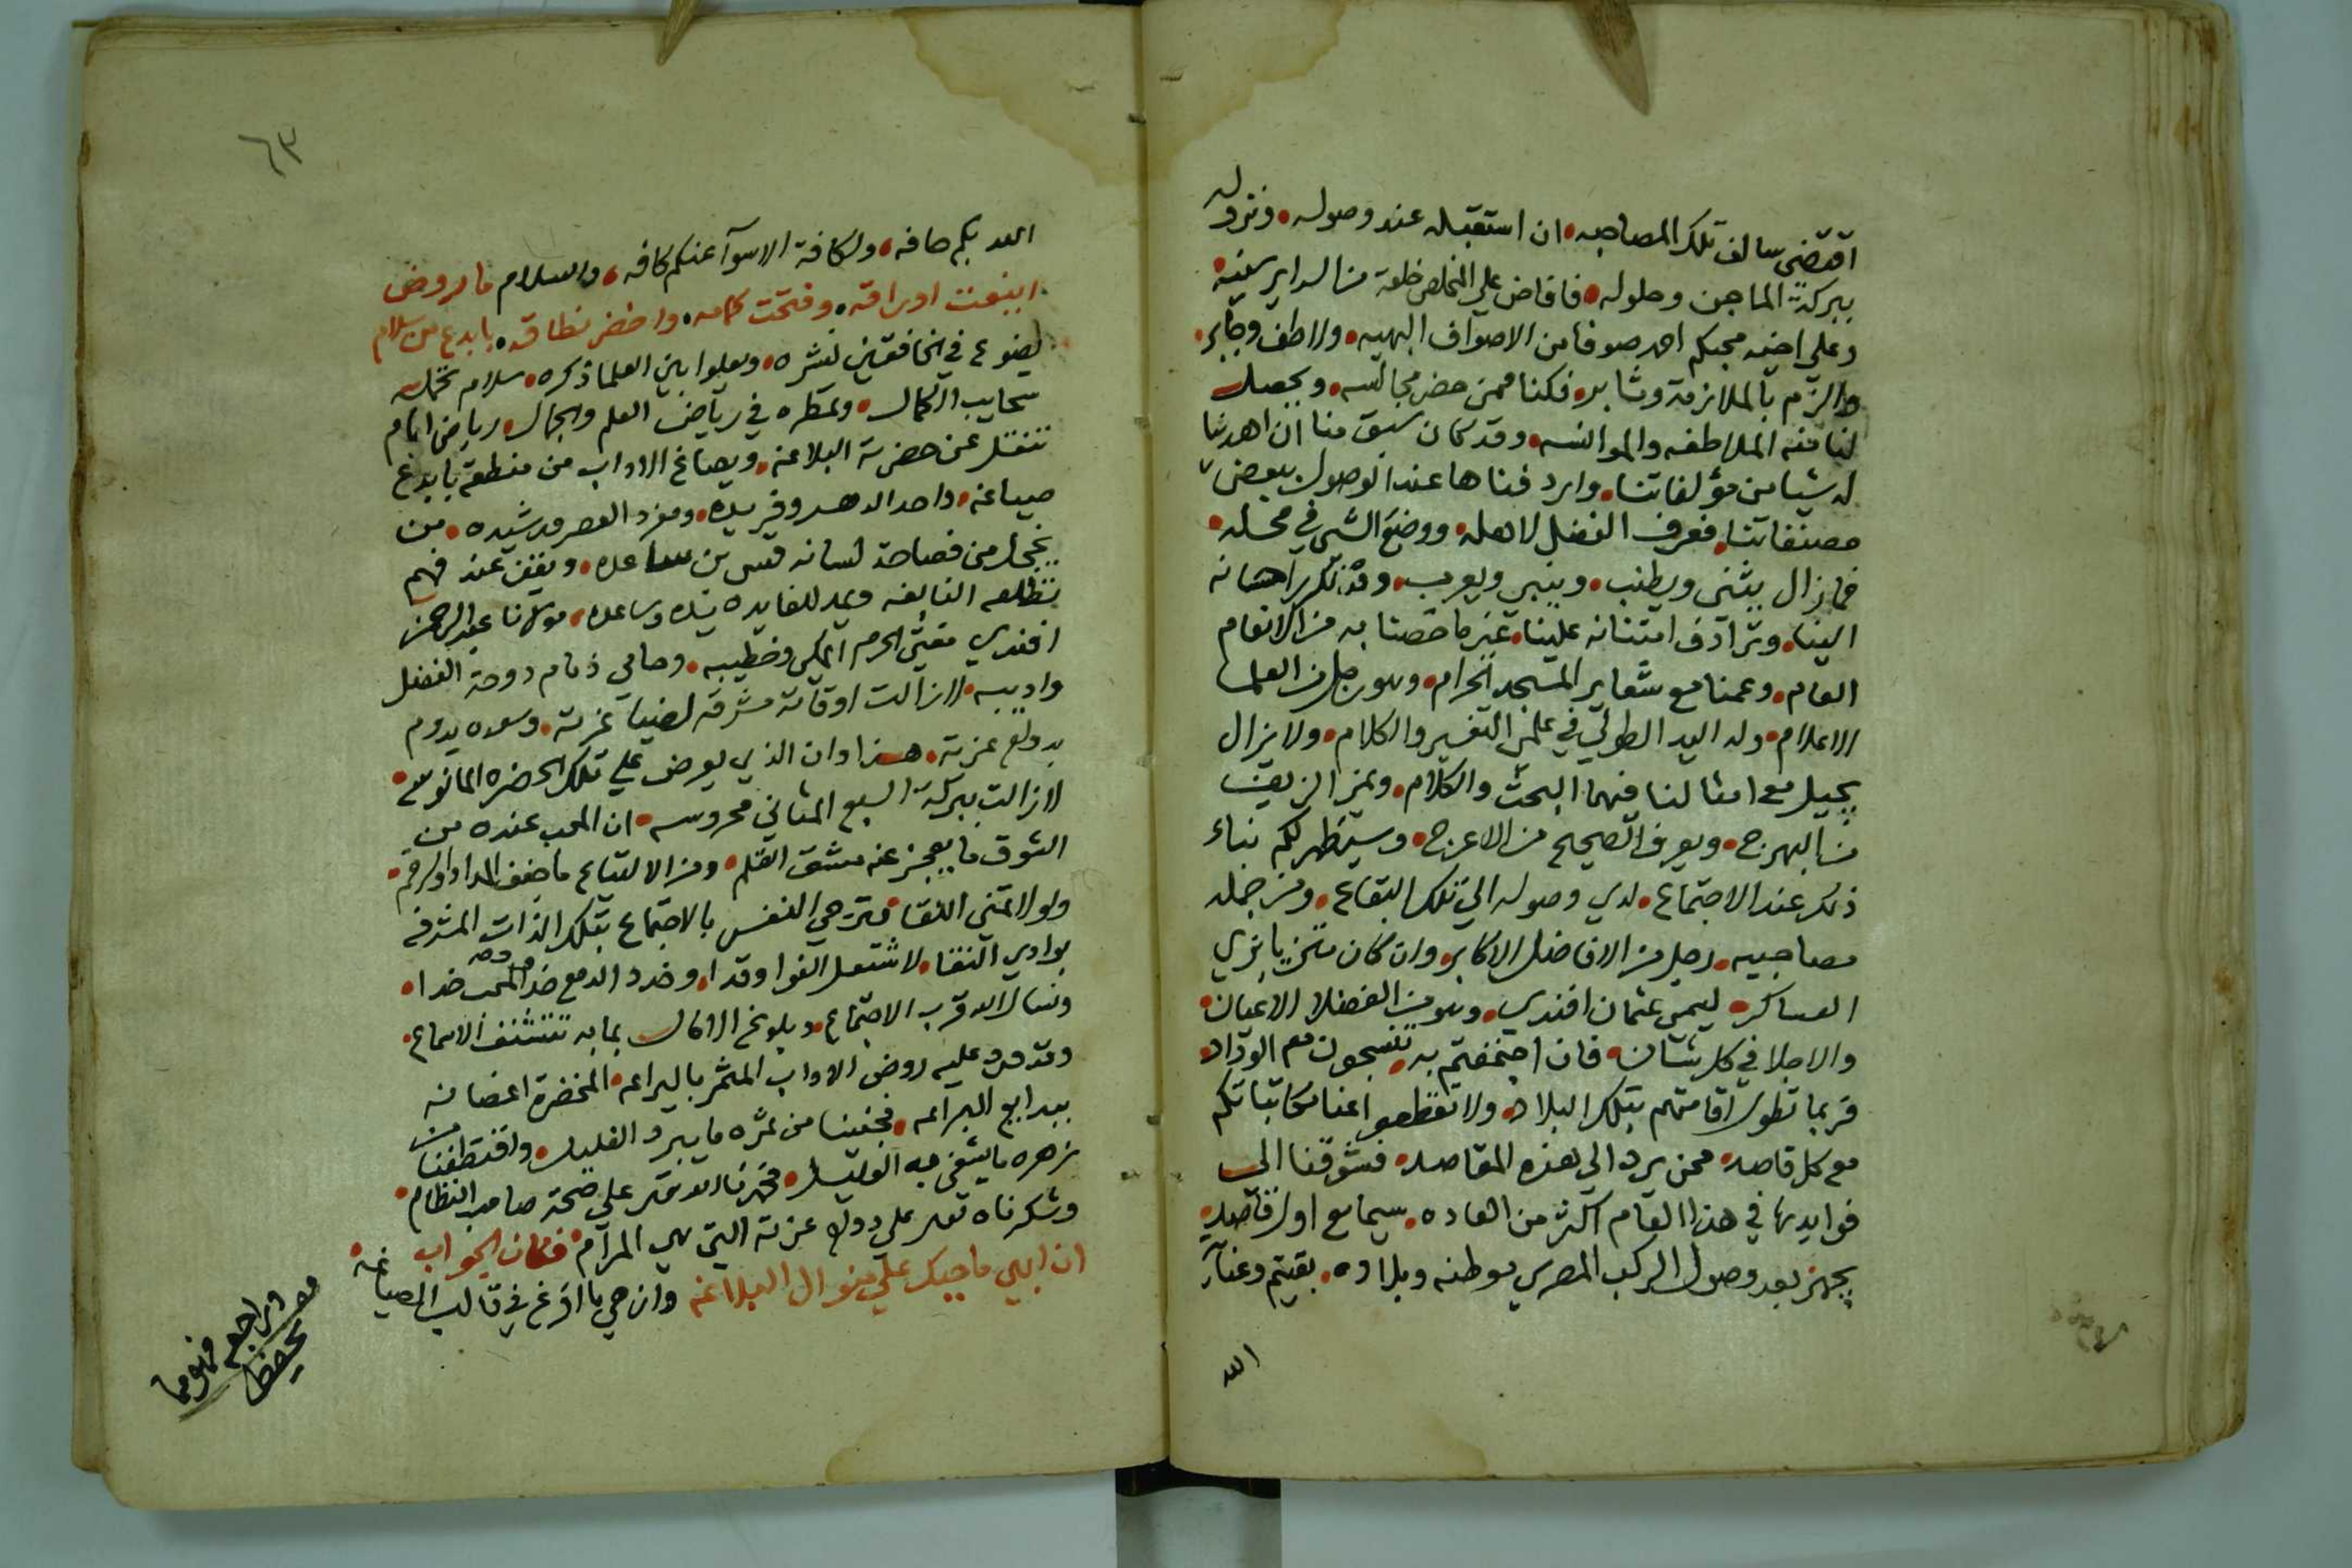 اقتضى سالف تلك المصاحبه ان استقبله عند وصوله ونزوله
ببركة الماجن وحلوله فافاض علي المخلص خلعة من السراير سنيه
وعلي اخيه محبكم احمد صوفا من الاصواف البهيه ولاطف وجابر
والزم بالملازمة وثابر فكنا ممن حضر مجالسه ويحصل
لنا منه الملاطفه والموانسه وقد كان سبق منا ان اهدينا
له شيا من مؤلفاتنا واردفناها عند الوصول ببعض
مصنفاتنا فعرف الفضل لاهله ووضع الشي في محله
فما زال يثني ويطنب وينبي ويعرب وقد تكرر احسانه
الينا وترادف امتنانه علينا غير ما خصنا به من الانعام
العام وعمنا مع شعاير المسجد الحرام وهو رجل من العلما
الاعلام وله اليد الطولي في علمي التفسير والكلام ولا يزال
يجيل مع امثالنا فيهما البحث والكلام ويميز الزيف
من البهرج ويعرف الصحيح من الاعرج وسيظهر لكم نباء
ذلك عند الاجتماع لدي وصوله الي تلك البقاع ومن جمله
مصاحبيه رجل من الافاضل الاكابر وان كان متزيا بزي
العساكر ليمي عثمان افندي وهو من الفضلا الاعيان
والاجلا في كل شان فان اجتمعتم به تنسجون معه الوداد
فربما تطول اقامتهم بتلك البلاد ولا تقطعوا عنا مكاتباتكم
مع كل قاصد ممن يرد الي هذه المقاصد فشوقنا الى
فوايدها في هذا العام اكثر من العاده سيما مع اول قاصد
يجهز بعد وصول الركب المصري بوطنه وبلاده بقيتم وعناية
الله
٦٣
الله بكم حافه ولكافة الاسوآ عنكم كافه والسلام ما روض
اينعت اوراقه وفتحت كمامه واخضر نطاقه بابدع من سلام
يضوع في الخافقين نشره ويعلوا بين العلما ذكره سلام تحمله
سحايب الكمال وتمطره في رياض العلم والجمال رياض امام
تنقل عن حضرته البلاغه ويصاغ الاداب من منطقه بابدع
صياغه واحد الدهر وفريده ومفرد العصر ورشيده من
يخجل من فصاحة لسانه قس بن ساعده ويقف عند فهم
تطلعه الفايقه ويمد للفايده يده وساعده مولانا عبد الرحمن
افندي مفتي الحرم المكي وخطيبه وحامي ذمام دوحة الفضل
واديبه لا زالت اوقاته مشرقه بضيا غرته وسعده يدوم
بدولة عزته هذا وان الذي يعرض علي تلك الحضره المانوسه
لا زالت ببركة السبع المثاني محروسه ان المحب عنده من
الشوق ما يعجز عنه مشق القلم ومن الالتياع ما ضعف المداد والرقم
ولولا تمني اللقا وترجي النفس بالاجتماع بتلك الذات المشرفه
بوادي النقا لاشتعل الفواد وقدا وخدد الدمع خد المحب خدا
ونسال الله قرب الاجتماع وبلوغ الامال بما به تتشنف الاسماع
وقد ورد عليه روض الاداب المثمر باليراعه المخضرة اغصانه
ببدايع البراعه فجنينا من ثمره ما يبرد الغليل واقتطفنا من
زهره ما يشفي به العليل فحمدنا الله تعالى على صحة صاحب النظام
وشكرناه تعالى على دولة عزته التي هي المرام فكان الجواب
ان ابهي ما حيك علي منوال البلاغه وازهي ما افرغ في قالب الصياغه
وراجع
يحفظ